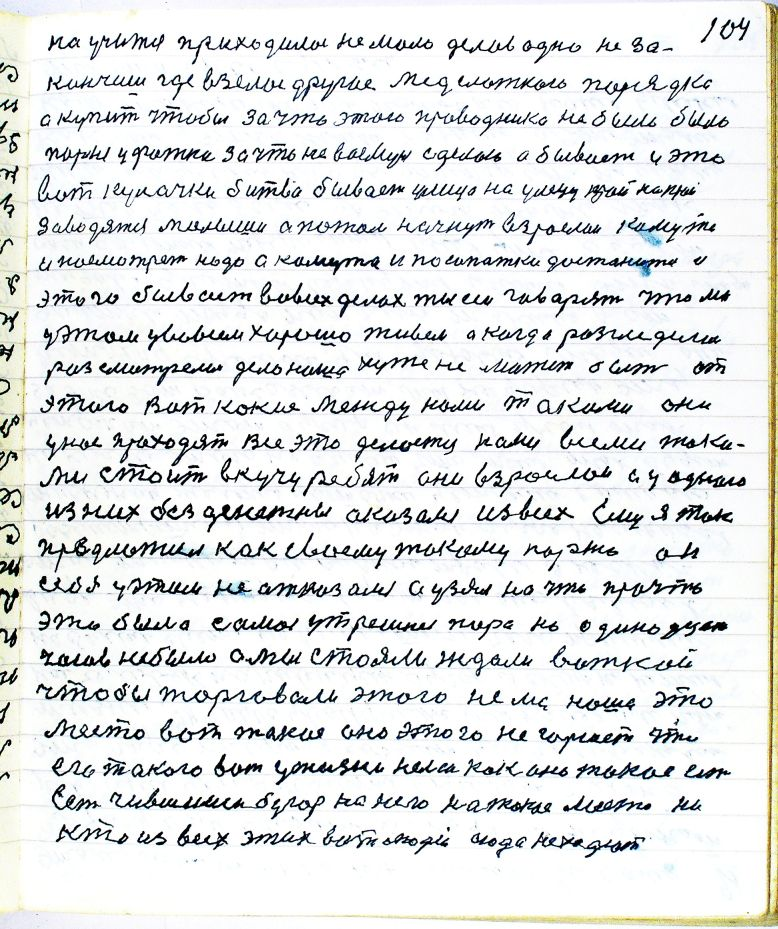 104
на учится приходилос не мало делов одно не за-
кончиш где взялос другое
а купит чтобы за что этого проводника не было было
парня у драки за что не воемуи сделаю а бывает и это
вот кулачки битва бывает улица на улицу край на край
заводятся малыши а потом начнут взрослаи кому то
и посмотрет надо а кому та и посапатки достанится и
этого бывает вовсех делах ты си гаварят что мы
уэтом увовсем харошо живем а когда разгледели
разсматрели дело наша хуже не может быт от
этого вот какие между нами такоми они
у нас проходят все это делается нами всеми таки-
ми стоит вкучу ребят они взрослаи а у одного
из них без денежны аказалс из всех Ему я так
предложил как своему такому парню он
себя уэтом не атказалс а узял на что прочти
это было самое утрешния пора но одинадцат
часов небыло а мы стояли ждали воткой
чтобы торговали этого нема наше это
место вот такое оно этого не гориет что
его такого вот ужизни нема как оно такое ест
Ест чивилкин бугор на него на такое место ни
кто из всех этих вот людей сюда неходют